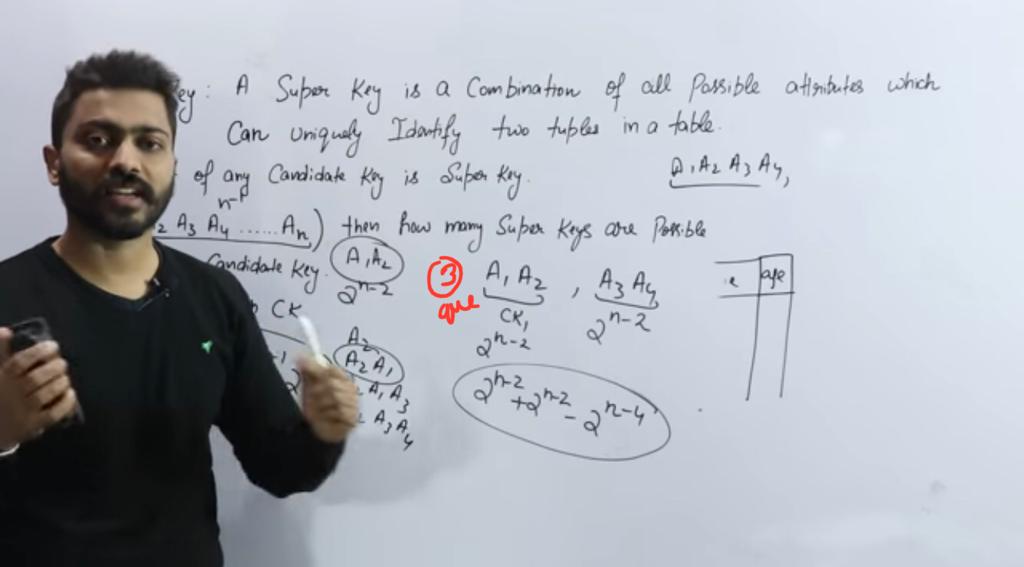 ey: A Super Key is a Combination of all Possible attributes which
Can uniquely Identify two tuples in a table.
of any Candidate Key is Super Key.
A₁A₂ A₃ A₄,
n-1
2 A₃ A₄ ...... Aₙ) then how many Super Keys are Possible
Candidate Key.
A₁A₂
2ⁿ⁻²
③ que
A₁A₂ , A₃A₄
CK₁
2ⁿ⁻² 2ⁿ⁻²
age
CK
A₂
A₂A₁
A₁A₃
A₃A₄
2ⁿ⁻² + 2ⁿ⁻² - 2ⁿ⁻⁴